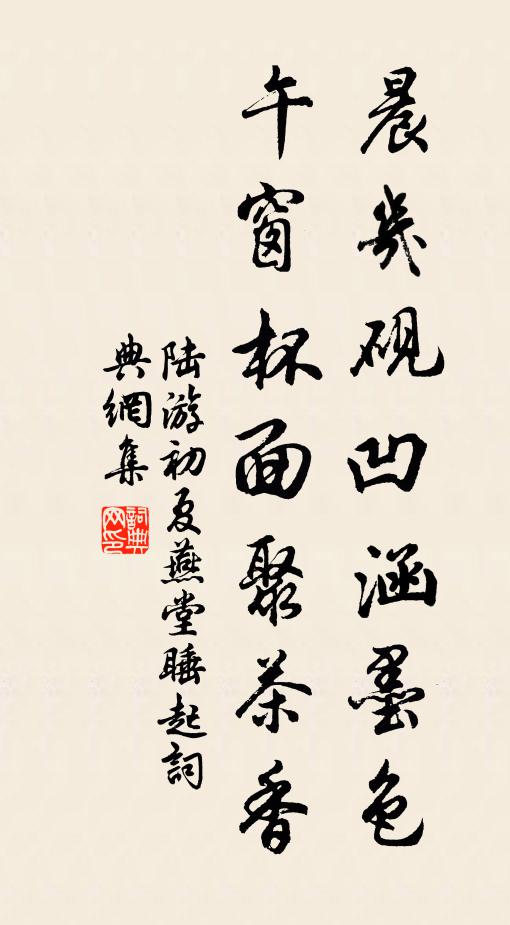 晨幾硯凹涵墨色
午窗杯面聚茶香
陆游初夏燕堂睡起詞
典網集
詞典
网印